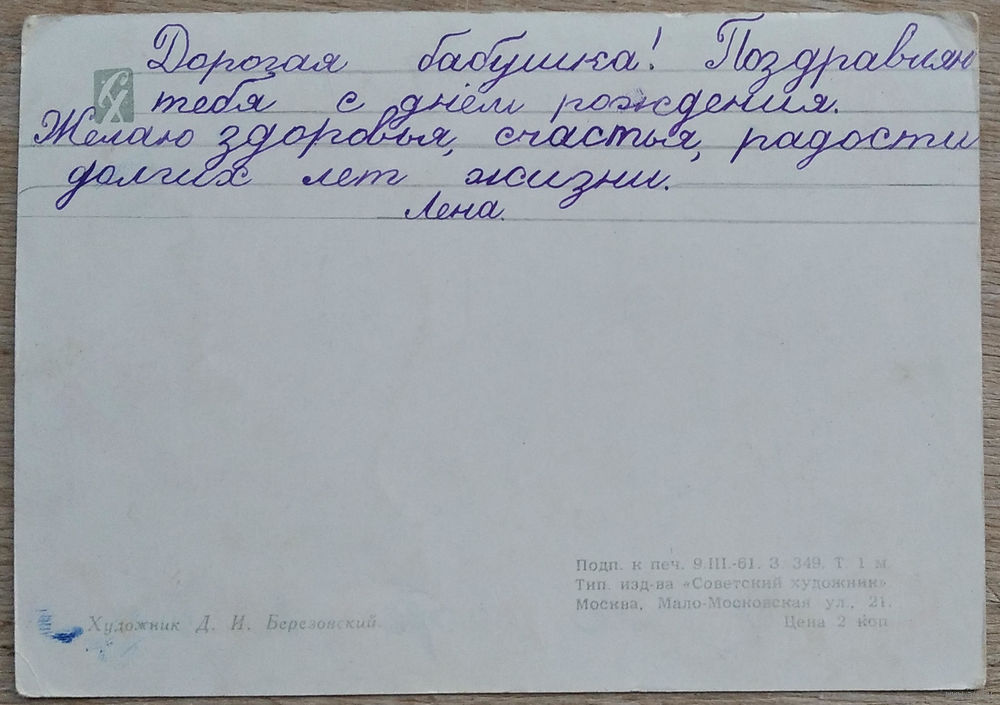 Дорогая бабушка! Поздравляю
тебя с днём рождения.
Желаю здоровья, счастья, радости
долгих лет жизни.
Лена.
СХ
Подп. к печ. 9.III.-61. З. 349. Т. 1 м.
Тип. изд-ва «Советский художник».
Москва, Мало-Московская ул., 21.
Цена 2 коп.
Художник Д. И. Березовский.